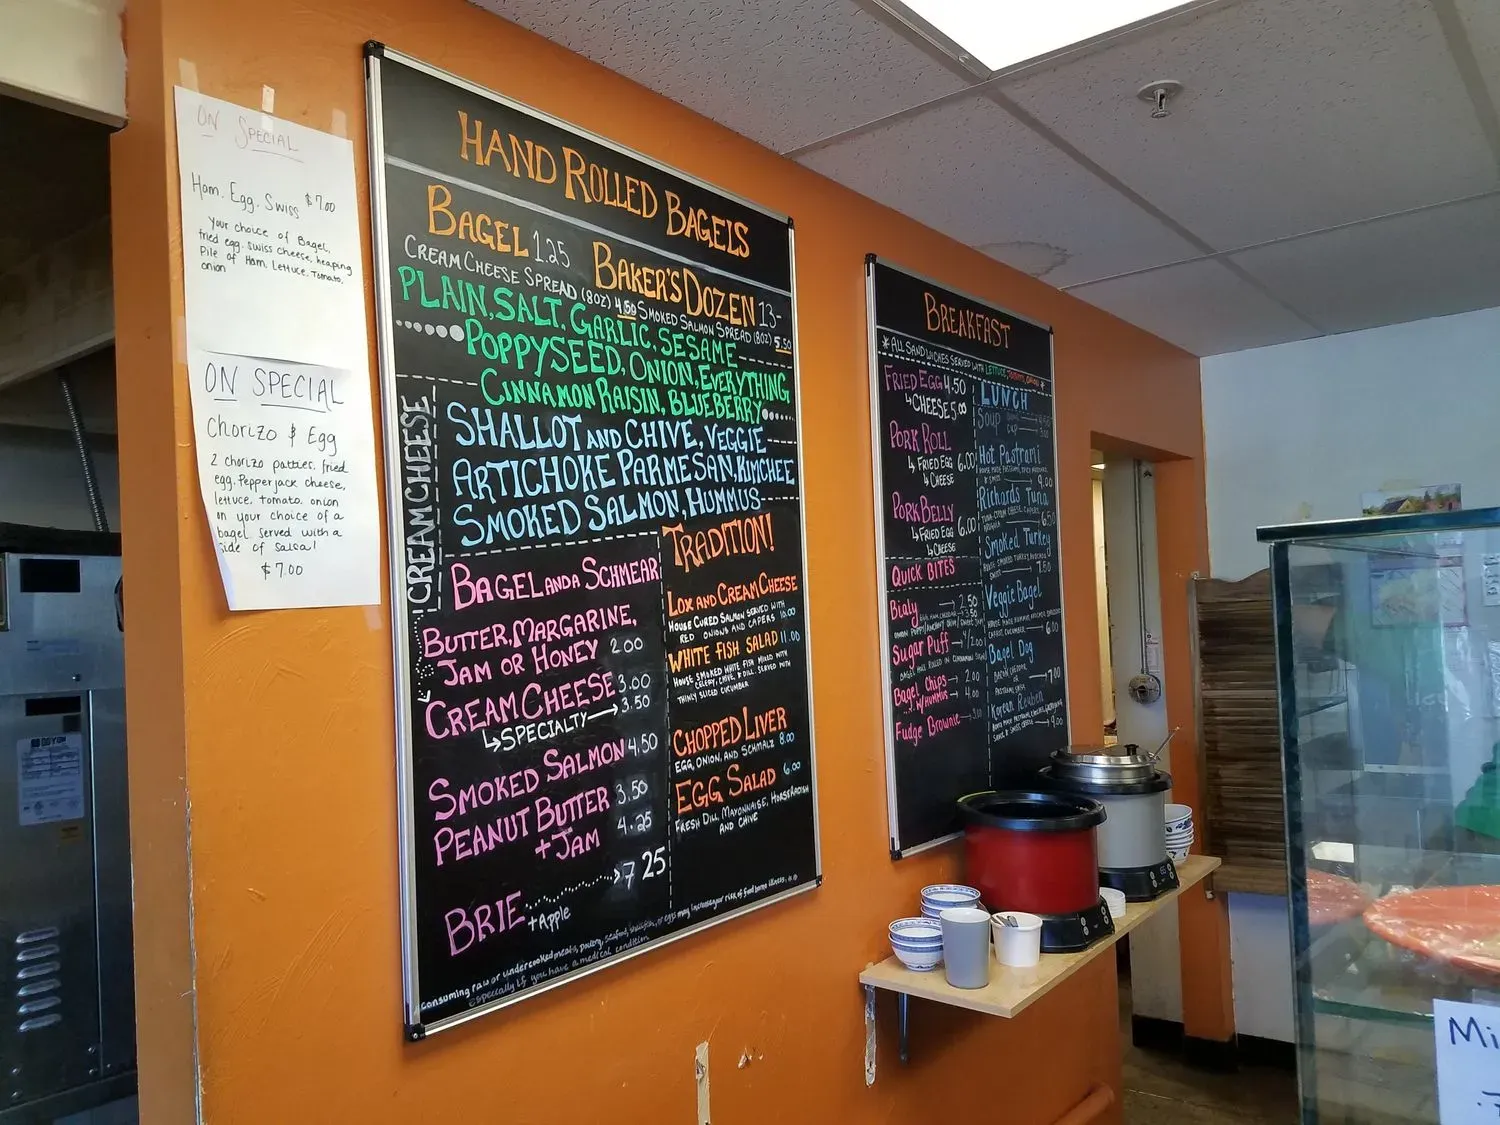 ON SPECIAL
Ham, Egg, Swiss $7.00
Your choice of Bagel,
fried egg, swiss cheese, heaping
Pile of Ham, Lettuce, Tomato,
onion
ON SPECIAL
Chorizo & Egg
2 chorizo patties, fried
egg, Pepperjack cheese,
lettuce, tomato, onion
on your choice of a
bagel served with a
side of salsa!
$7.00
HAND ROLLED BAGELS
BAGEL 1.25
BAKER'S DOZEN 13-
CREAM CHEESE SPREAD (8OZ) 4.50 SMOKED SALMON SPREAD (8OZ) 5.50
PLAIN, SALT, GARLIC, SESAME
POPPYSEED, ONION, EVERYTHING
CINNAMON RAISIN, BLUEBERRY
CREAMCHEESE
SHALLOT AND CHIVE, VEGGIE
ARTICHOKE PARMESAN, KIMCHEE
SMOKED SALMON, HUMMUS
BAGEL AND A SCHMEAR
BUTTER, MARGARINE,
JAM OR HONEY 2.00
CREAM CHEESE 3.00
SPECIALTY 3.50
SMOKED SALMON 4.50
PEANUT BUTTER 3.50
+ JAM 4.25
BRIE 7.25
+ Apple
TRADITION!
LOX AND CREAM CHEESE
HOUSE CURED SALMON SERVED WITH
RED ONIONS AND CAPERS 10.00
WHITE FISH SALAD 11.00
HOUSE SMOKED WHITE FISH MIXED WITH
CELERY, CHIVE, & DILL. SERVED WITH
THINLY SLICED CUCUMBER
CHOPPED LIVER
EGG, ONION, AND SCHMALZ 8.00
EGG SALAD 6.00
FRESH DILL, MAYONNAISE, HORSERADISH
AND CHIVE
consuming raw or undercooked meats, poultry, seafood, shellfish, or eggs may increase your risk of food borne illness,
especially if you have a medical condition
BREAKFAST
*ALL SANDWICHES SERVED WITH LETTUCE, TOMATO, ONION*
FRIED EGG 4.50
CHEESE 5.00
PORK ROLL
FRIED EGG 6.00
CHEESE
PORK BELLY
FRIED EGG 6.00
CHEESE
QUICK BITES
Bialy 2.50
Sugar Puff
Bagel Chips 2.00
W/HUMMUS 4.00
Fudge Brownie
LUNCH
Soup
Hot Pastrami
9.00
Richards Tuna
6.50
Smoked Turkey
HOUSE SMOKED TURKEY, AVOCADO,
SWISS 7.50
Veggie Bagel
CARROT, CUCUMBER 6.00
Bagel Dog
BACON CHEDDAR
OR
PASTRAMI, SWISS 7.00
Korean Reuben
SAUCE & SWISS CHEESE 9.00
DOYON
Mi